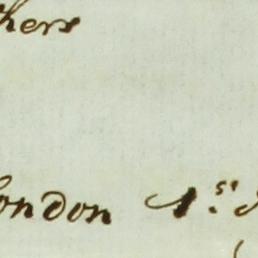 thers
London 1st